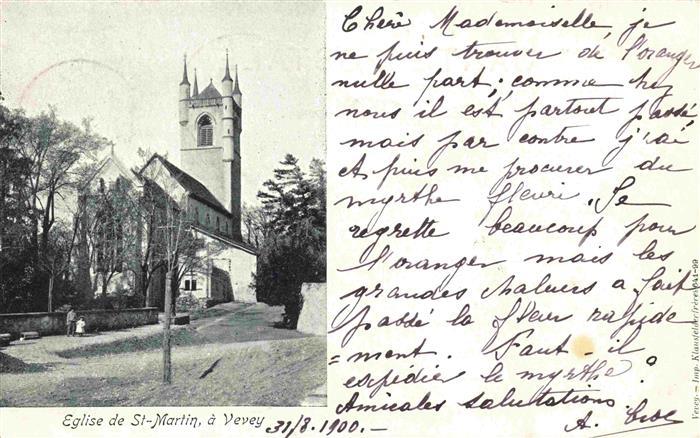 Chère Mademoiselle, je
ne puis trouver de l'oranger
nulle part; comme
nous il est partout passé,
mais par contre j'ai
puis me procurer du
myrthe fleuri. Je
regrette beaucoup pour
l'oranger mais les
grandes chaleurs a fait
passé la fleur rapide
=ment. Faut-il
expédier le myrthe?
Amicales salutations.
A.
Eglise de St-Martin, à Vevey
31/8. 1900.-
Vevey.